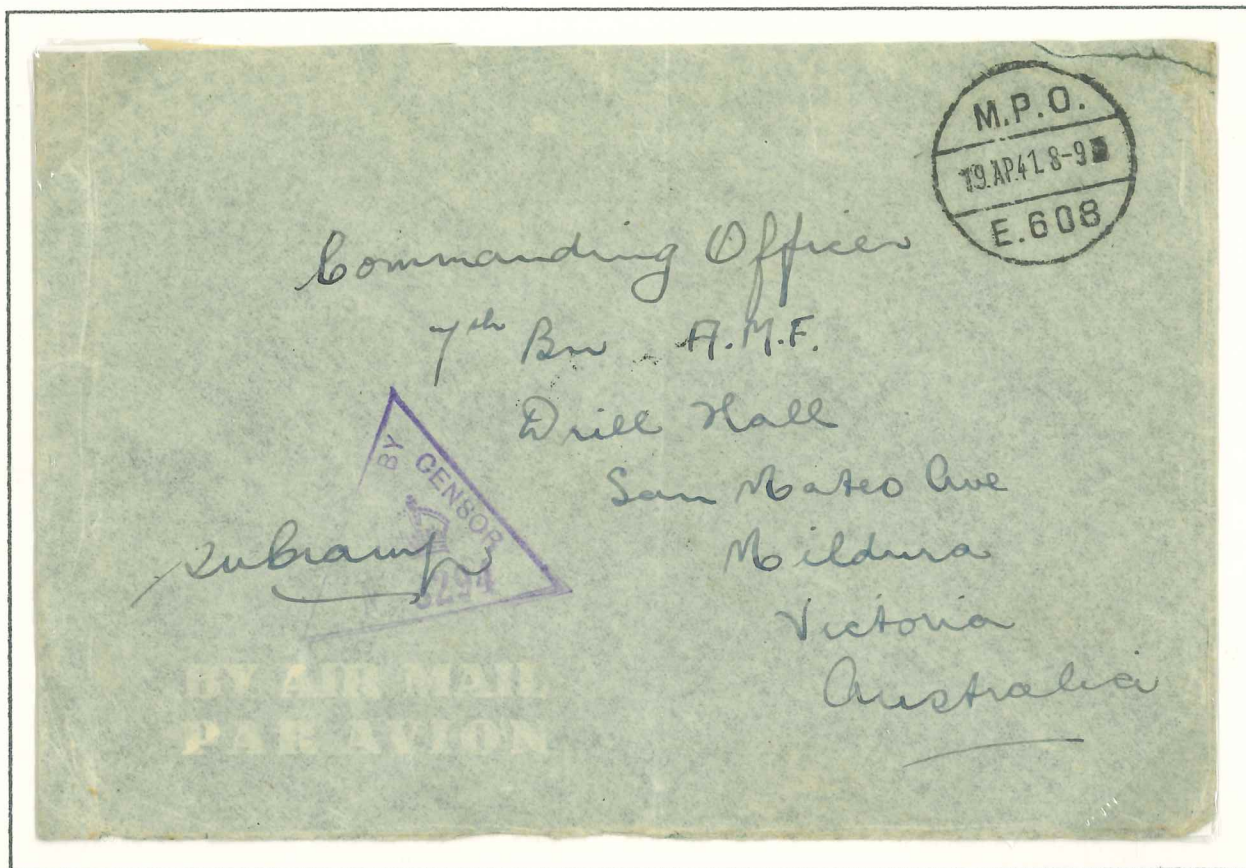 M.P.O.
19.AP.41.8-9
E.608
Commanding Officer
7th Bn A.M.F.
Drill Hall
San Mateo Ave
Mildura
Victoria
Australia
BY CENSOR
3294
BY AIR MAIL
PAR AVION